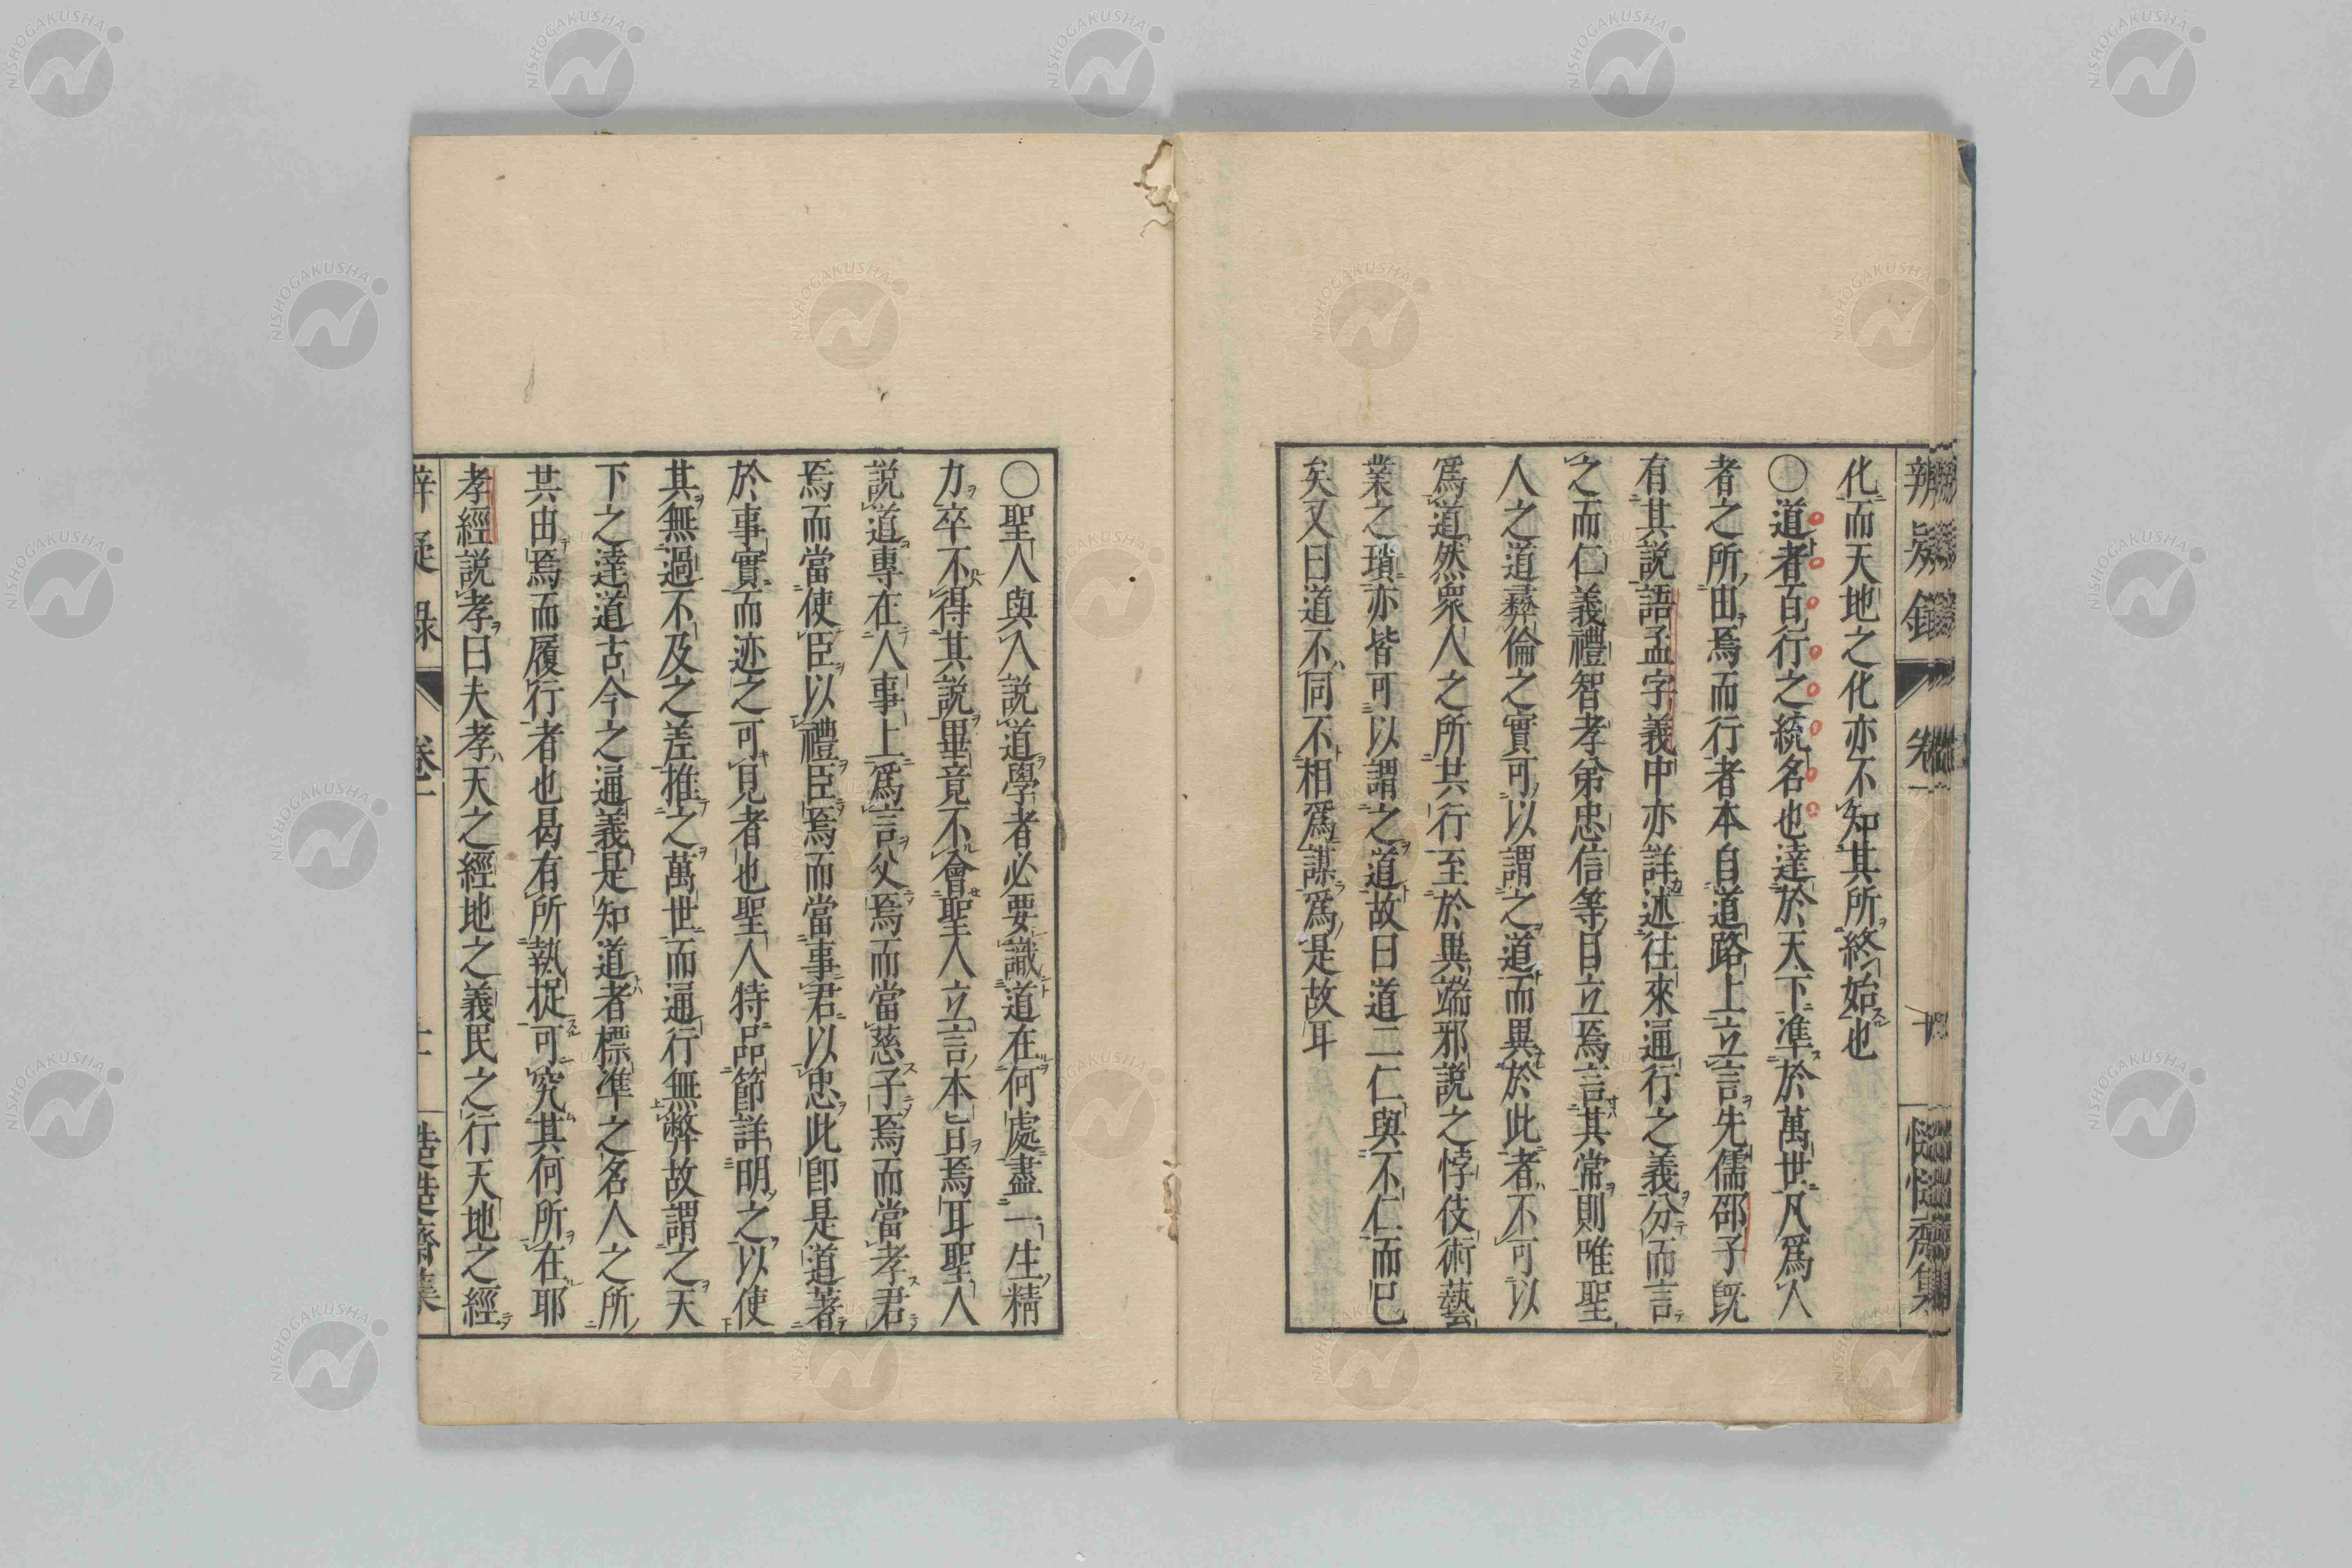 化而天地之化亦不知其所終始也
〇道者百行之統名也達於天下準於萬世凡爲人
者之所由焉而行者本自道路上立言先儒邵子旣
有其説語孟字義中亦詳述往來通行之義分而言
之而仁義禮智孝弟忠信等目立焉言其常則唯聖
人之道彝倫之實可以謂之道而異於此者不可以
爲道然衆人之所共行至於異端邪説之悖伎術藝
業之瑣亦皆可以謂之道故曰道二仁與不仁而已
矣又曰道不同不相爲謀爲是故耳
〇聖人與人説道學者必要識道在何處盡一生精
力卒不得其説畢竟不會聖人立言本旨焉耳聖人
説道專在人事上爲言父焉而當慈子焉而當孝君
焉而當使臣以禮臣焉而當事君以忠此卽是道著
於事實而迹之可見者也聖人特品節詳明之以使
其無過不及之差推之萬世而通行無弊故謂之天
下之達道古今之通義是知道者標準之名人之所
共由焉而履行者也曷有所執捉可究其何所在耶
孝經説孝曰夫孝天之經地之義民之行天地之經
卷一
NISHOGAKUSHA